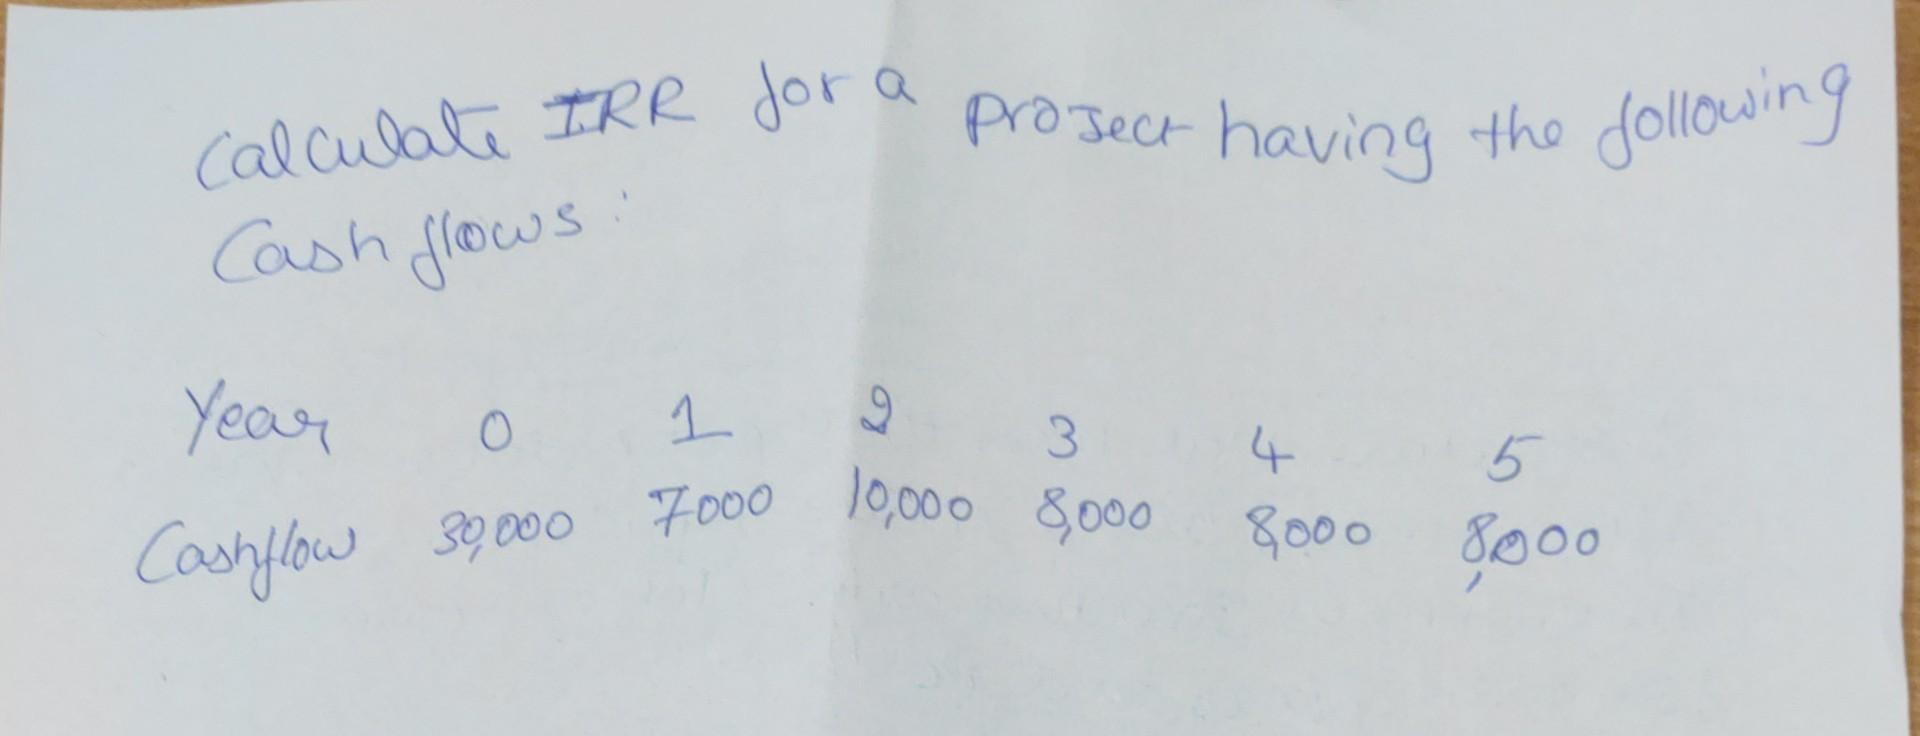 Calculate IRR for a project having the following
Cash flows:
Year 0 1 2 3 4 5
Cashflow 30,000 7000 10,000 8,000 8,000 8,000